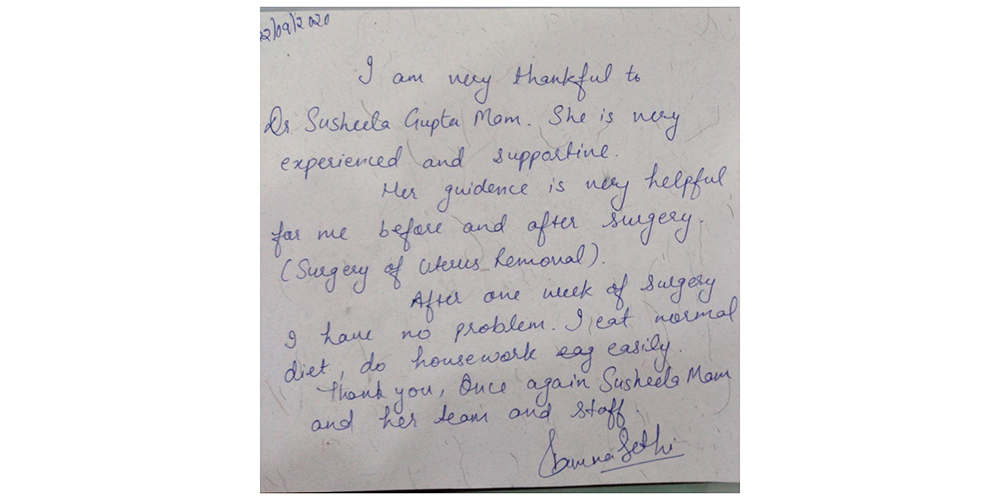 22/09/2020
I am very thankful to
Dr Susheela Gupta Mam. She is very
experienced and supportive.
Her guidence is very helpful
for me before and after surgery.
(Surgery of Uterus Removal).
After one week of surgery
I have no problem. I eat normal
diet, do housework eag easily.
Thank you, Once again Susheela Mam
and her team and staff.
Sethi